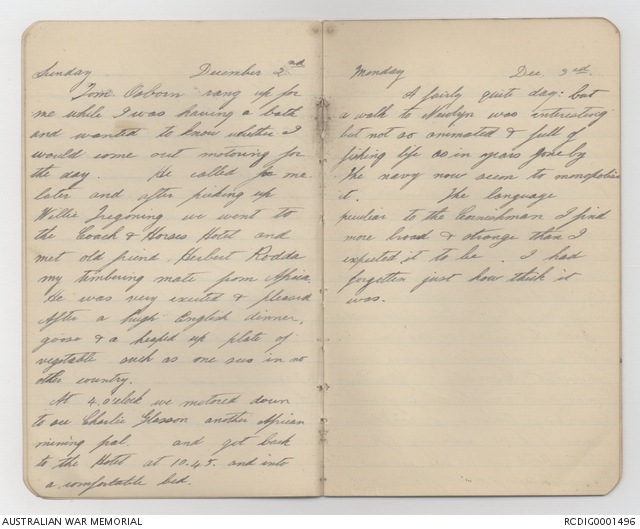 Sunday December 2nd
Tom Osborn rang up for
me while I was having a bath
and wanted to know whether I
would come out motoring for
the day. He called for me
later and after picking up
Willie Tregoning we went to
the Coach & Horses Hotel and
met old friend Herbert Rodda
my timbering mate from Africa.
He was very excited & pleased
After a high English dinner,
goose & a heaped up plate of
vegetable such as one sees in no
other country.
At 4. o'clock we motored down
to see Charlie Glasson another African
mining pal. and got back
to the Hotel at 10.45. and into
a comfortable bed.
Monday Dec. 3rd.
A fairly quite day. but
a walk to Newlyn was interesting
but not so animated & full of
fishing life as in years gone by
The navy now seem to monopolise
it. The language
peculiar to the Cornishman I find
more broad & strange than I
expected it to be. I had
forgotten just how thick it
was.
AUSTRALIAN WAR MEMORIAL RCDIG0001496